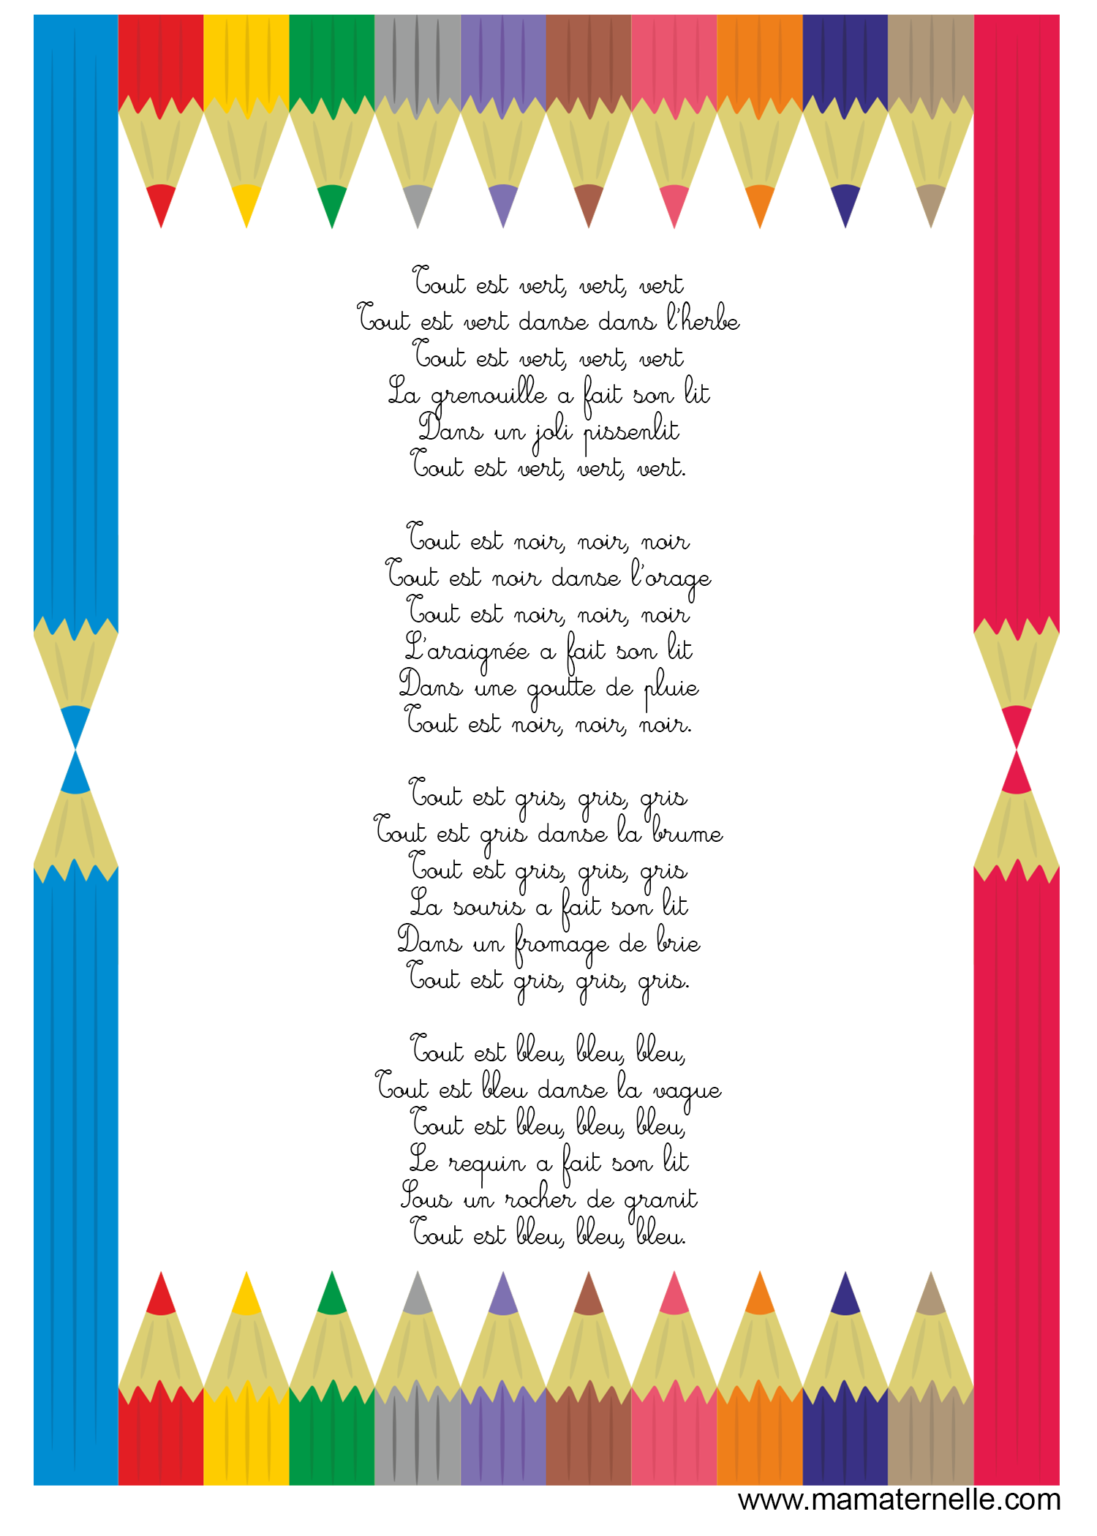 Tout est vert, vert, vert
Tout est vert danse dans l'herbe
Tout est vert, vert, vert
La grenouille a fait son lit
Dans un joli pissenlit
Tout est vert, vert, vert.
Tout est noir, noir, noir
Tout est noir danse l'orage
Tout est noir, noir, noir
L'araignée a fait son lit
Dans une goutte de pluie
Tout est noir, noir, noir.
Tout est gris, gris, gris
Tout est gris danse la brume
Tout est gris, gris, gris
La souris a fait son lit
Dans un fromage de brie
Tout est gris, gris, gris.
Tout est bleu, bleu, bleu,
Tout est bleu danse la vague
Tout est bleu, bleu, bleu,
Le requin a fait son lit
Sous un rocher de granit
Tout est bleu, bleu, bleu.
www.mamaternelle.com